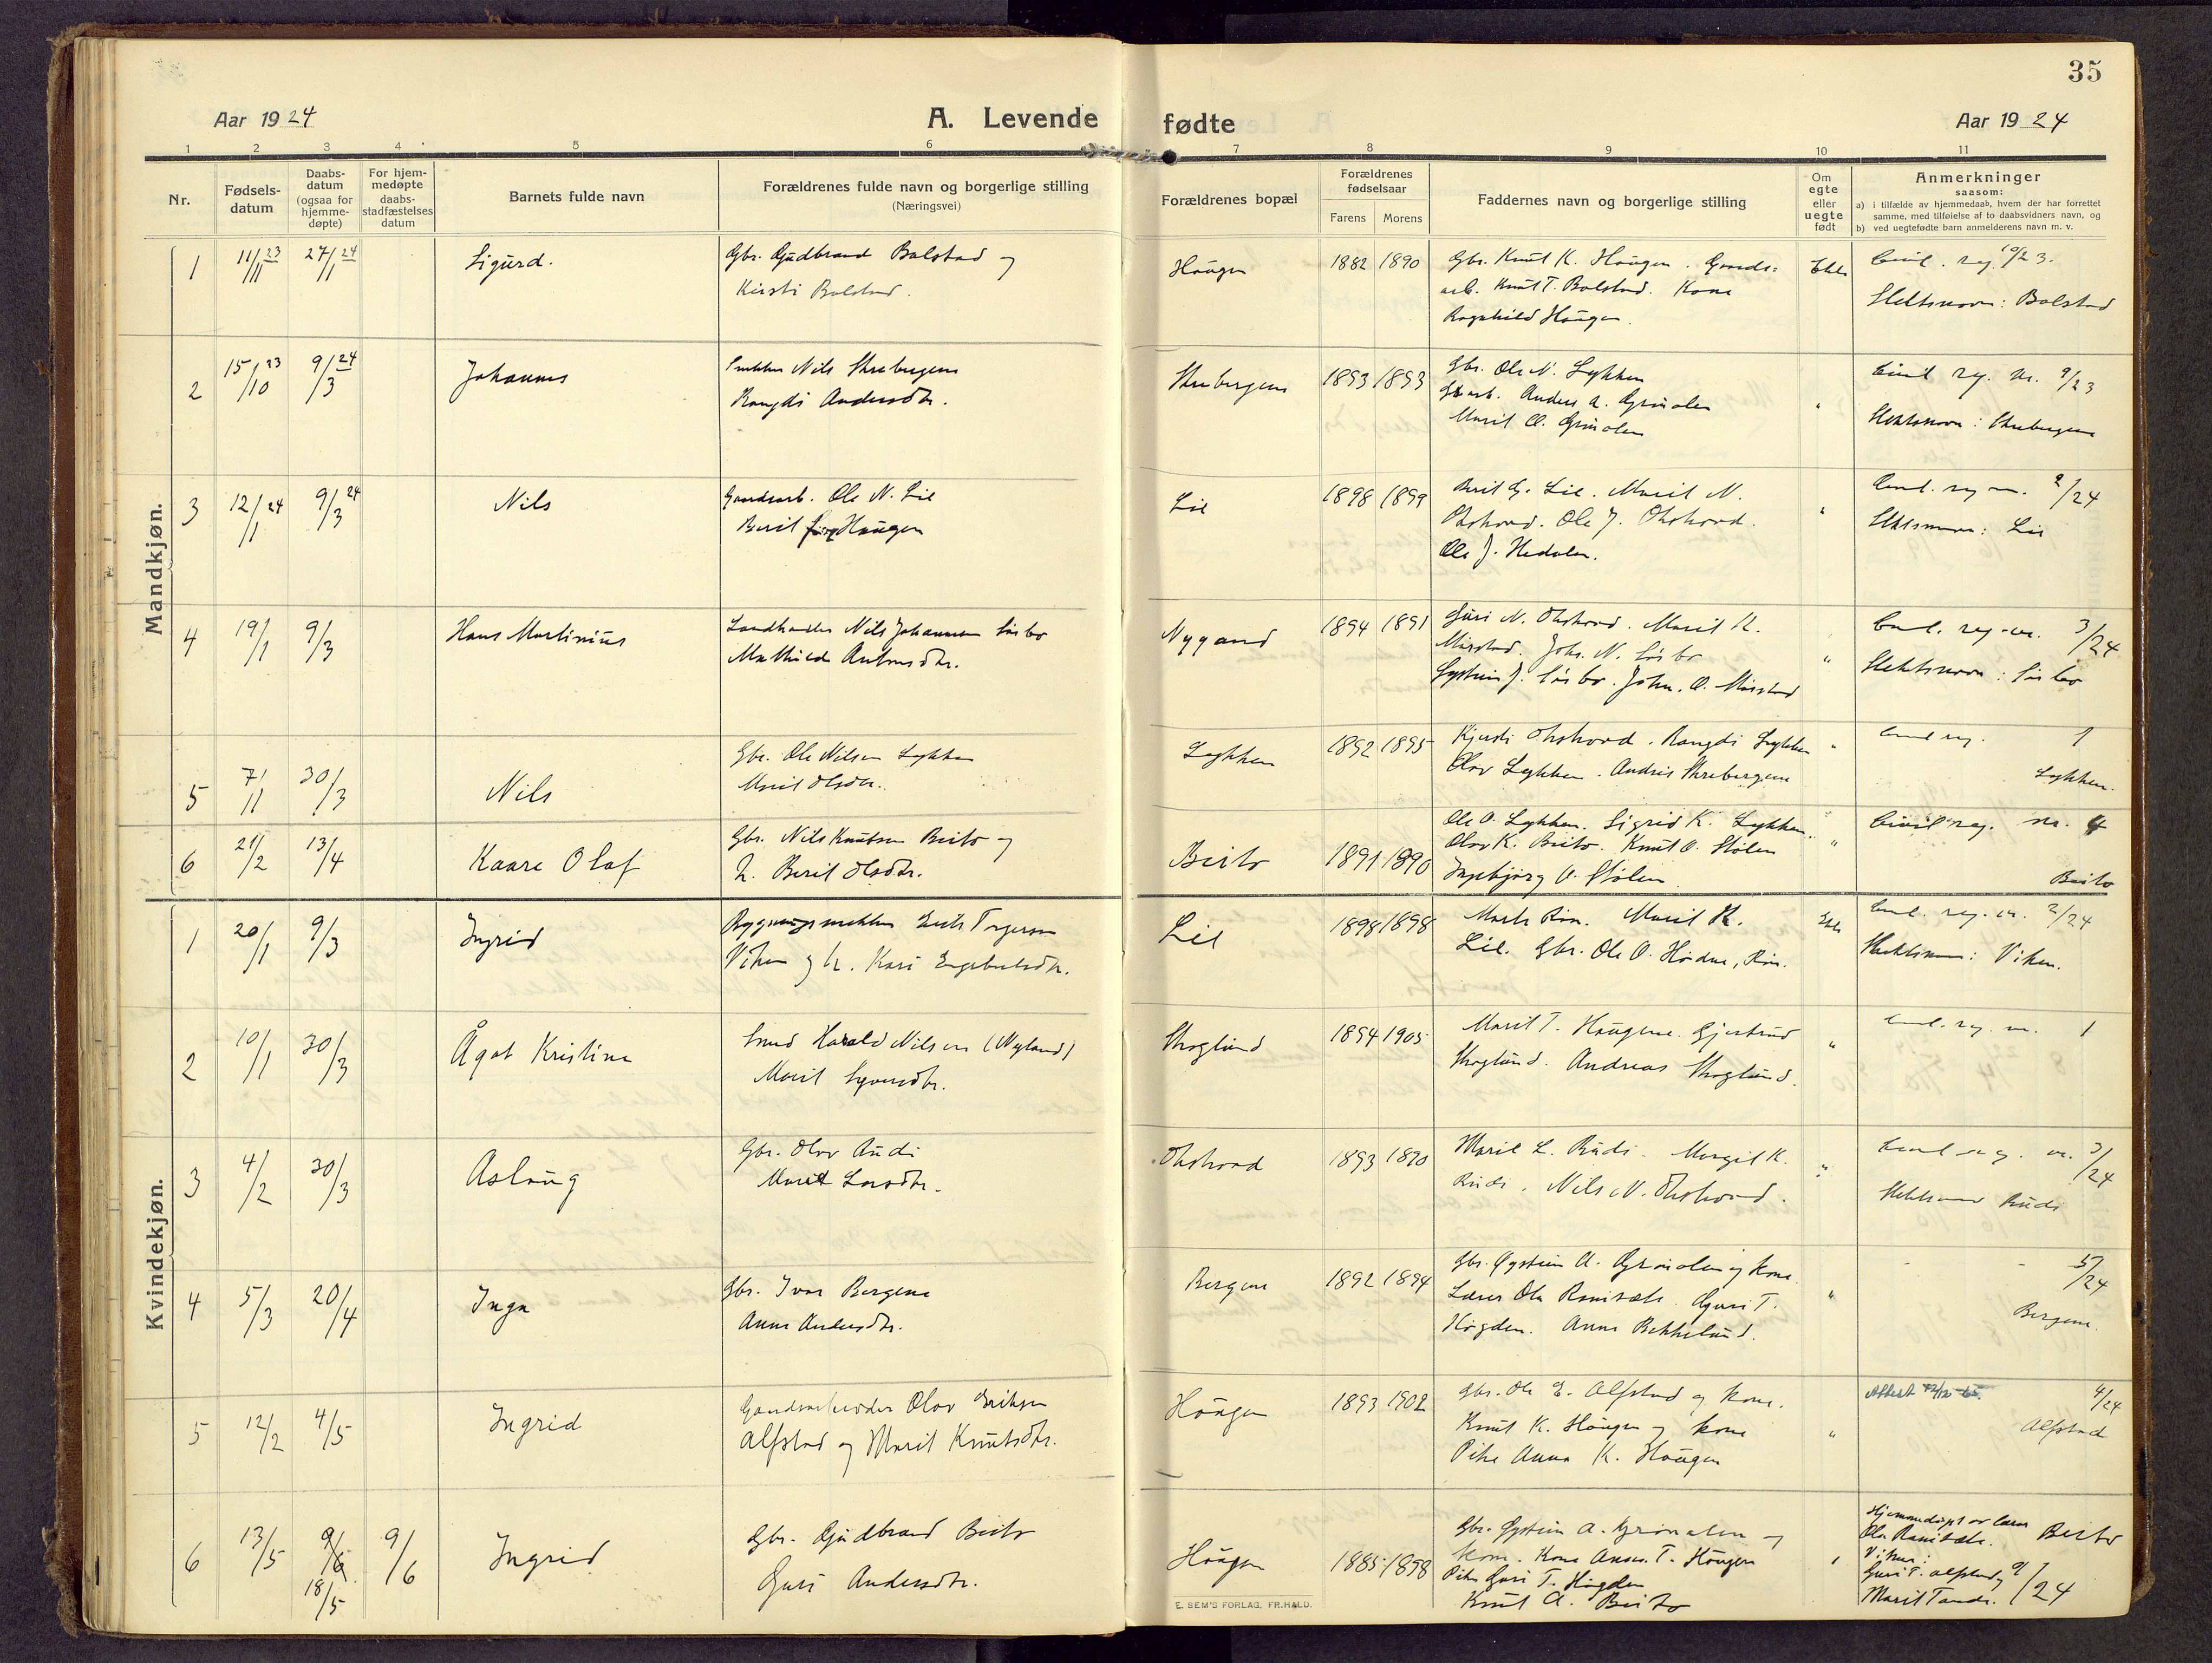 35
Aar 1924
A. Levende fødte
Aar 1924
1 2 3 4 5 6 7 8 9 10 11
Nr.
Fødsels-
datum
Daabs-
datum
(ogsaa for
hjemme-
døpte)
For hjem-
medøpte
daabs-
stadfæstelses
datum
Barnets fulde navn
Forældrenes fulde navn og borgerlige stilling
(Næringsvei)
Forældrenes bopæl
Forældrenes
fødselsaar
Farens Morens
Faddernes navn og borgerlige stilling
Om
egte
eller
uegte
født
Anmerkninger
saasom:
a) i tilfælde av hjemmedaab, hvem der har forrettet
samme, med tilføielse af to daabsvidners navn, og
b) ved uegtefødte barn anmelderens navn m. v.
Mandkjøn.
1 11/11 23 27/1 24 Sigurd. Gbr. Gudbrand Bolstad og
Kirsti Bolstad.
Haugen 1882 1890 Gbr. Knut K. Haugen. Gaards-
arb. Knut T. Bolstad. Kone
Ragnhild Haugen.
Civil. reg. 10/23.
Slektsnavn: Bolstad
2 15/10 23 9/3 24 Johannes Nils Skrebergene
Rangdi Andersdtr.
Skrebergene 1893 1893 Gbr. Ole N. Lykken
Anders A. Grønolen
Marit O. Grønolen
" Civil reg. nr. 9/23
Slektsnavn: Skrebergene
3 12/1 24 9/3 24 Nils Gaardsarb. Ole N. Lie
Berit Haugen
Lie 1898 1899 Berit G. Lie. Marit N.
Okshovd. Ole J. Okshovd.
Ole J. Hedalen.
" Civil. reg nr. 2/24
Slektsnavn: Lie
4 19/1 9/3 Hans Martinius Landhandler Nils Johannesen Sørbo
Mathilde Antonsdtr.
Nygaard 1894 1891 Guri N. Okshovd. Marit K.
Mørstad. Johs. N. Sørbo
Gystein J. Sørbo. John. O. Mørstad
" Civil. reg-nr. 3/24
Slektsnavn: Sørbo
5 7/11 30/3 Nils Gbr. Ole Nilsen Lykken
Marit Olsdtr.
Lykken 1892 1895 Kjersti Okshovd. Rangdi Lykken
Olav Lykken. Andris Skrebergene
" Civil reg. 1
Lykken.
6 21/2 13/4 Kaare Olaf Gbr. Nils Knutsen Beito og
h. Berit Olsdtr.
Beito 1891 1890 Ole O. Lykken. Sigrid K. Lykken.
Olav K. Beito. Knut O. Stølen
Ingebjørg O. Stølen
" Civil reg. nr. 4
Beito
Kvindekjøn.
1 20/1 9/3 Ingrid Bygningssnekker Torgersen
Viken og h. Kari Engebretsdtr.
Lie 1898 1898 Marit K.
Lie. Gbr. Ole O. Høidne, Røn.
Civil. reg. nr. 2/24
Slektsnavn: Viken.
2 10/1 30/3 Ågot Kristine Smed Harald Nilsen (Nyland)
Marit Syversdtr.
Skoglund 1894 1905 Marit T. Haugene. Gjertrud
Skoglund. Andreas Skoglund.
" Civil. reg. nr. 1
3 4/2 30/3 Aslaug Gbr. Olav Rudi
Marit Larsdtr.
Okshovd 1893 1890 Marit L. Rudi. Margit K.
Rudi. Nils N. Okshovd.
" Civil reg. nr. 3/24
Slektsnavn Rudi
4 5/3 20/4 Inga Gbr. Ivar Bergene
Anne Andersdtr.
Bergene 1892 1894 Gbr. Øystein A. Grønolen og kone.
Lærer Ola Ranisæte. Guri T.
Høgden. Anne Bekkelund.
" 5/24
Bergene.
5 12/2 4/5 Ingrid Gaardsarbeider Olav Eriksen
Alfstad og Marit Knutsdtr.
Haugen 1893 1902 Gbr. Ole E. Alfstad og kone.
Knut K. Haugen og kone
Pike Anna K. Haugen
" Attest 4/24
Alfstad
6 13/5 9/6 18/5 9/6 Ingrid Gbr. Gudbrand Beito
Guri Andersdtr.
Haugen 1885 1898 Gbr. Øystein A. Grønolen og
kone. Kone Anne. T. Haugen
Pike Guri T. Høgden
Knut A. Beito
Hjemmedøpt av lærer
Ola Ranisæte. Beito
Vitner:
Guri T. Alfstad og
Marit 9/24
E. SEM'S FORLAG, FR.HALD.